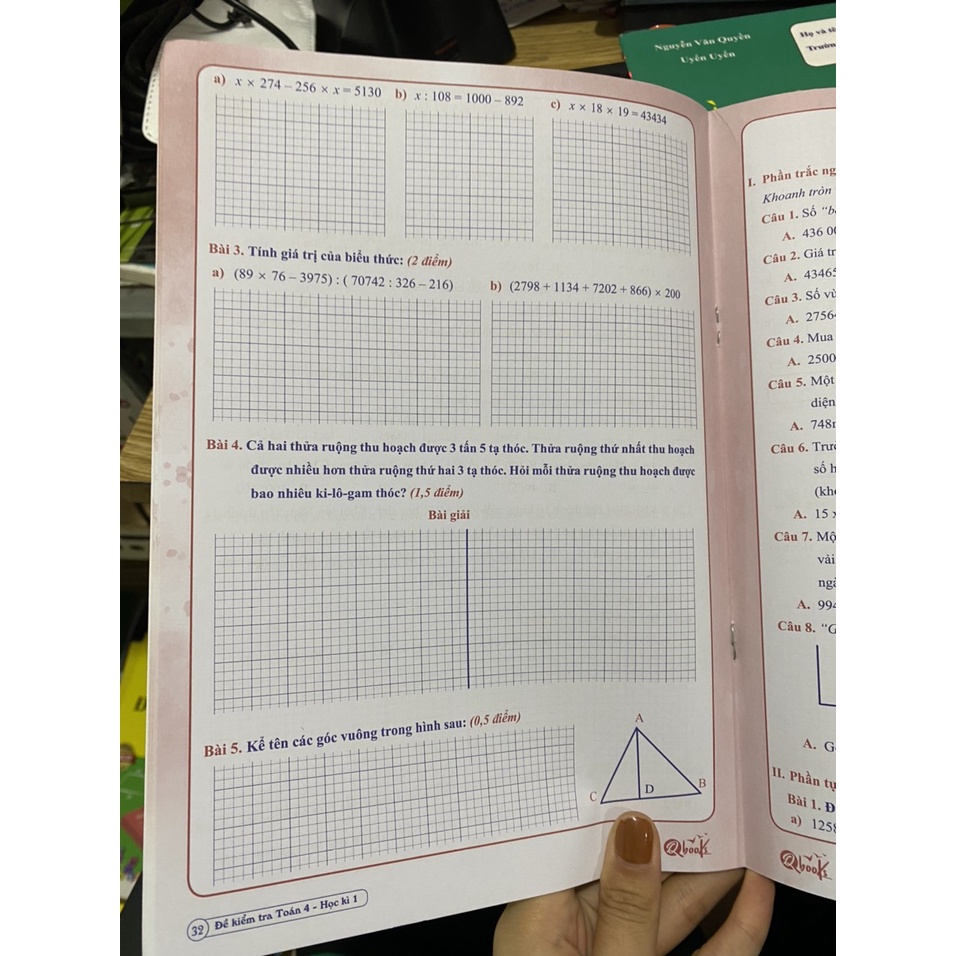 Nguyễn Văn Quyền
Uyên Uyên
Họ và
a) x × 274 – 256 × x = 5130 b) x : 108 = 1000 – 892 c) x × 18 × 19 = 43434
Bài 3. Tính giá trị của biểu thức: (2 điểm)
a) (89 × 76 – 3975) : ( 70742 : 326 – 216) b) (2798 + 1134 + 7202 + 866) × 200
Bài 4. Cả hai thửa ruộng thu hoạch được 3 tấn 5 tạ thóc. Thửa ruộng thứ nhất thu hoạch
được nhiều hơn thửa ruộng thứ hai 3 tạ thóc. Hỏi mỗi thửa ruộng thu hoạch được
bao nhiêu ki-lô-gam thóc? (1,5 điểm)
Bài giải
Bài 5. Kể tên các góc vuông trong hình sau: (0,5 điểm)
A
C D B
Qbooks
32 Đề kiểm tra Toán 4 - Học kì 1
I. Phần trắc
Khoanh tròn
Câu 1. Số
A. 436
Câu 2. Giá
A. 4346
Câu 3. Số
A. 2756
Câu 4. Mua
A. 2500
Câu 5. Một
diện
A. 748
Câu 6.
số
A. 15
Câu 7.
vải
A. 99
Câu 8. "G
A. G
II. Phần
Bài 1.
a) 125
Qbooks